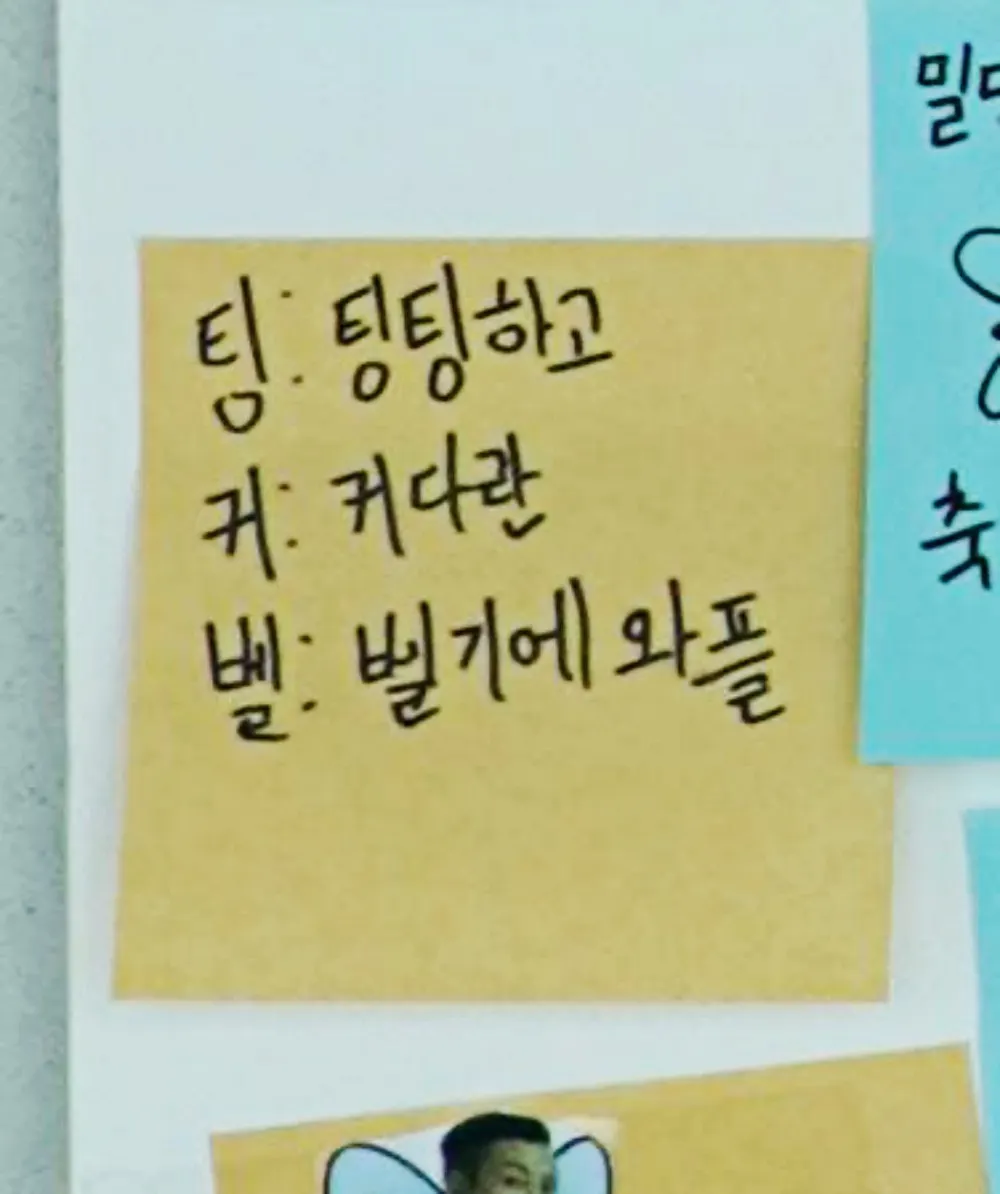 팅: 팅팅하고
커: 커다란
벨: 벨기에 와플